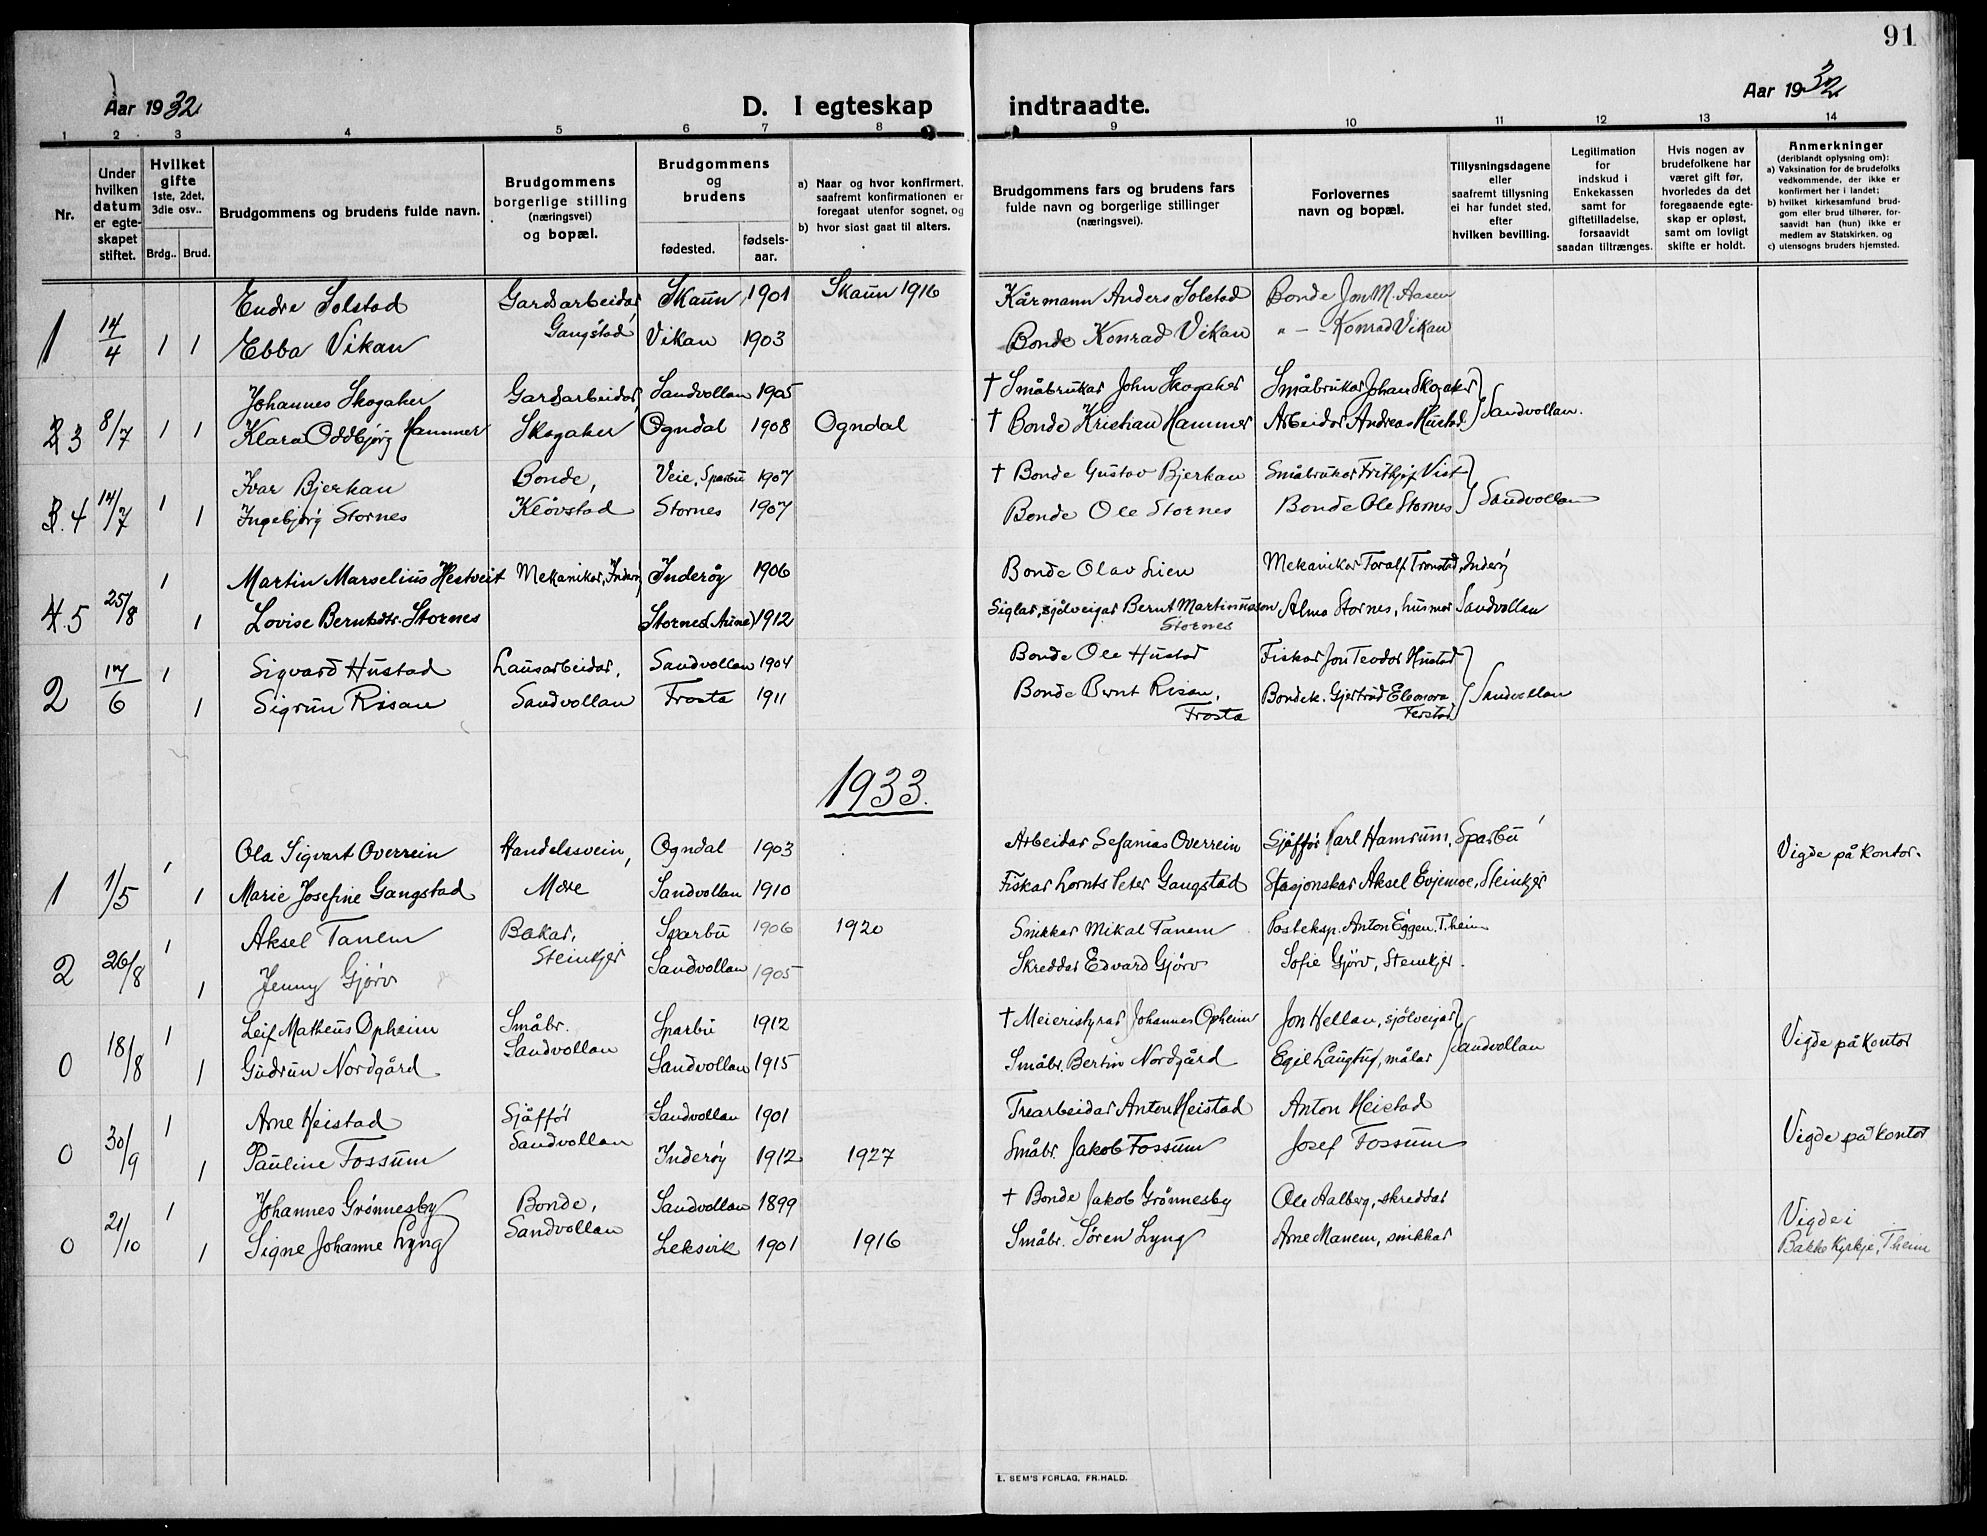 91
Aar 1932
D. I egteskap indtraadte.
Aar 1932
1 2 3 4 5 6 7 8 9 10 11 12 13 14
Nr.
Under hvilken datum er egteskapet stiftet.
Hvilket gifte 1ste, 2det, 3die osv..
Brdg.. Brud.
Brudgommens og brudens fulde navn.
Brudgommens borgerlige stilling (næringsvei) og bopæl.
Brudgommens og brudens
fødested.
fødselsaar.
a) Naar og hvor konfirmert, saafremt konfirmationen er foregaat utenfor sognet, og
b) hvor sidst gaat til alters.
Brudgommens fars og brudens fars fulde navn og borgerlige stillinger (næringsvei).
Forlovernes navn og bopæl.
Tillysningsdagene eller saafremt tillysning ei har fundet sted, efter hvilken bevilling.
Legitimation for indskud i Enkekassen samt for giftetilladelse, forsaavidt saadan tiltrænges.
Hvis nogen av brudefolkene har været gift før, hvorledes da det foregaaende egteskap er opløst, samt om lovligt skifte er holdt.
Anmerkninger (deriblandt oplysning om):
a) Vaksination for de brudefolks vedkommende, der ikke er konfirmert her i landet;
b) hvilket kirkesamfund brudgom eller brud tilhører, forsaavidt han (hun) ikke er medlem av Statskirken, og
c) utensogns bruders hjemsted.
Endre Solstad Gardsarbeidar, Skaun 1901 Skaun 1916 Kårmann Anders Solstad Bonde Jon M. Aasen
1 14/4 1 1 Ebba Vikan Gangstad Vikan 1903 Bonde Konrad Vikan " - Konrad Vikan
Johannes Skogaker Gardsarbeidar, Sandvollan 1905 † Småbrukar John Skogaker Småbrukar Johan Skogaker
3 8/7 1 1 Klara Oddbjørg Hammer Skogaker Ogndal 1908 Ogndal † Bonde Kristian Hammer Arbeidar Andreas Hustad } Sandvollan.
Ivar Bjerkan Bonde, Veie, Sparbu 1907 † Bonde Gustav Bjerkan Småbrukar Frithjof Vist
4 14/7 1 1 Ingebjørg Stornes Kløvstad Stornes 1907 Bonde Ole Stornes Bonde Ole Stornes } Sandvollan
1 Martin Marselius Hestveit Mekanikar, Inderøy Inderøy 1906 Bonde Olav Lien Mekanikar Toralf Tronstad, Inderøy
5 25/8 1 Lovise Berntsdtr. Stornes Stornes (Aune) 1912 Siglar, sjølveigar Bernt Martinusson Stornes Alma Stornes, husmor Sandvollan
17/6 1 Sigvard Hustad Lausarbeidar, Sandvollan 1904 Bonde Ole Hustad Fiskar Jon Teodor Hustad
2 1 Sigrun Risan Sandvollan Frosta 1911 Bonde Bernt Risan, Frosta Bondek. Gjertrud Eleonora Ferstad } Sandvollan
1933.
1 Ola Sigvart Overrein Handelssvein, Ogndal 1903 Arbeidar Sefanias Overrein Sjåffør Karl Hamrum, Sparbu
Vigde på kontor.
1 1/5 1 Marie Josefine Gangstad Mære Sandvollan 1910 Fiskar Lornts Peter Gangstad Stasjonskar Aksel Evjemoe, Steinkjer
1 Aksel Tanem Bakar, Steinkjer Sparbu 1906 1920 Snikkar Mikal Tanem Posteksp. Anton Eggen. T.heim
2 26/8 1 Jenny Gjørv Sandvollan 1905 Skreddar Edvard Gjørv Sofie Gjørv, Steinkjer.
1 Leif Matheus Opheim Småbr. Sandvollan Sparbu 1912 † Meieristyrar Johannes Opheim Jon Hellan, sjølveigar
0 18/8 1 Gudrun Nordgård Sandvollan 1915 Småbr. Bertin Nordgård Egil Langtug, målar } Sandvollan Vigde på kontor
1 Arne Heistad Sjåffør Sandvollan Sandvollan 1901 Trearbeidar Anton Heistad Anton Heistad
0 30/9 1 Pauline Fossum Inderøy 1912 1927 Småbr. Jakob Fossum Josef Fossum Vigde på kontor
1 Johannes Grønnesby Bonde, Sandvollan Sandvollan 1899 † Bonde Jakob Grønnesby Ole Aalberg, skreddar
0 21/10 1 Signe Johanne Lyng Leksvik 1901 1916 Småbr. Søren Lyng Arne Manem, snikkar Vigde i Bakke Kyrkje, T.heim
E. SEM'S FORLAG, FR.HALD.